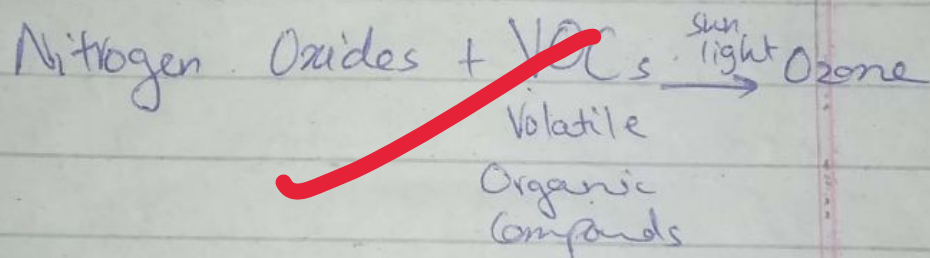 Nitrogen Oxides + VOCs sun light → Ozone
Volatile
Organic
Compounds